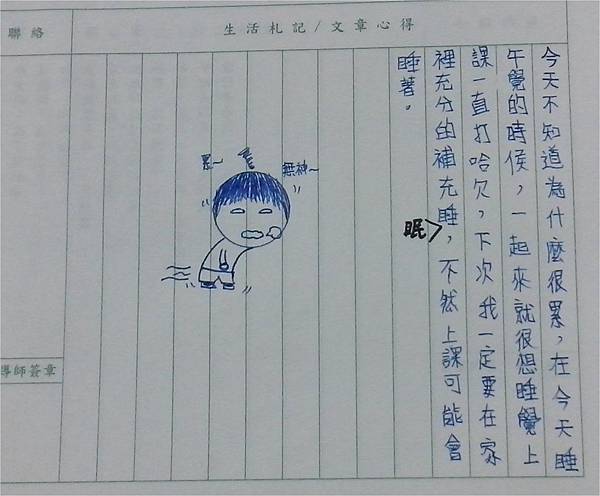 生活札記/文章心得
聯絡
今天不知道為什麼很累,在今天睡
午覺的時侯,一起來就很想睡覺上
課一直打哈欠,下次我一定要在家
裡充分的補充睡,不然上課可能會
眠
睡著。
無神~
累~
導師簽章